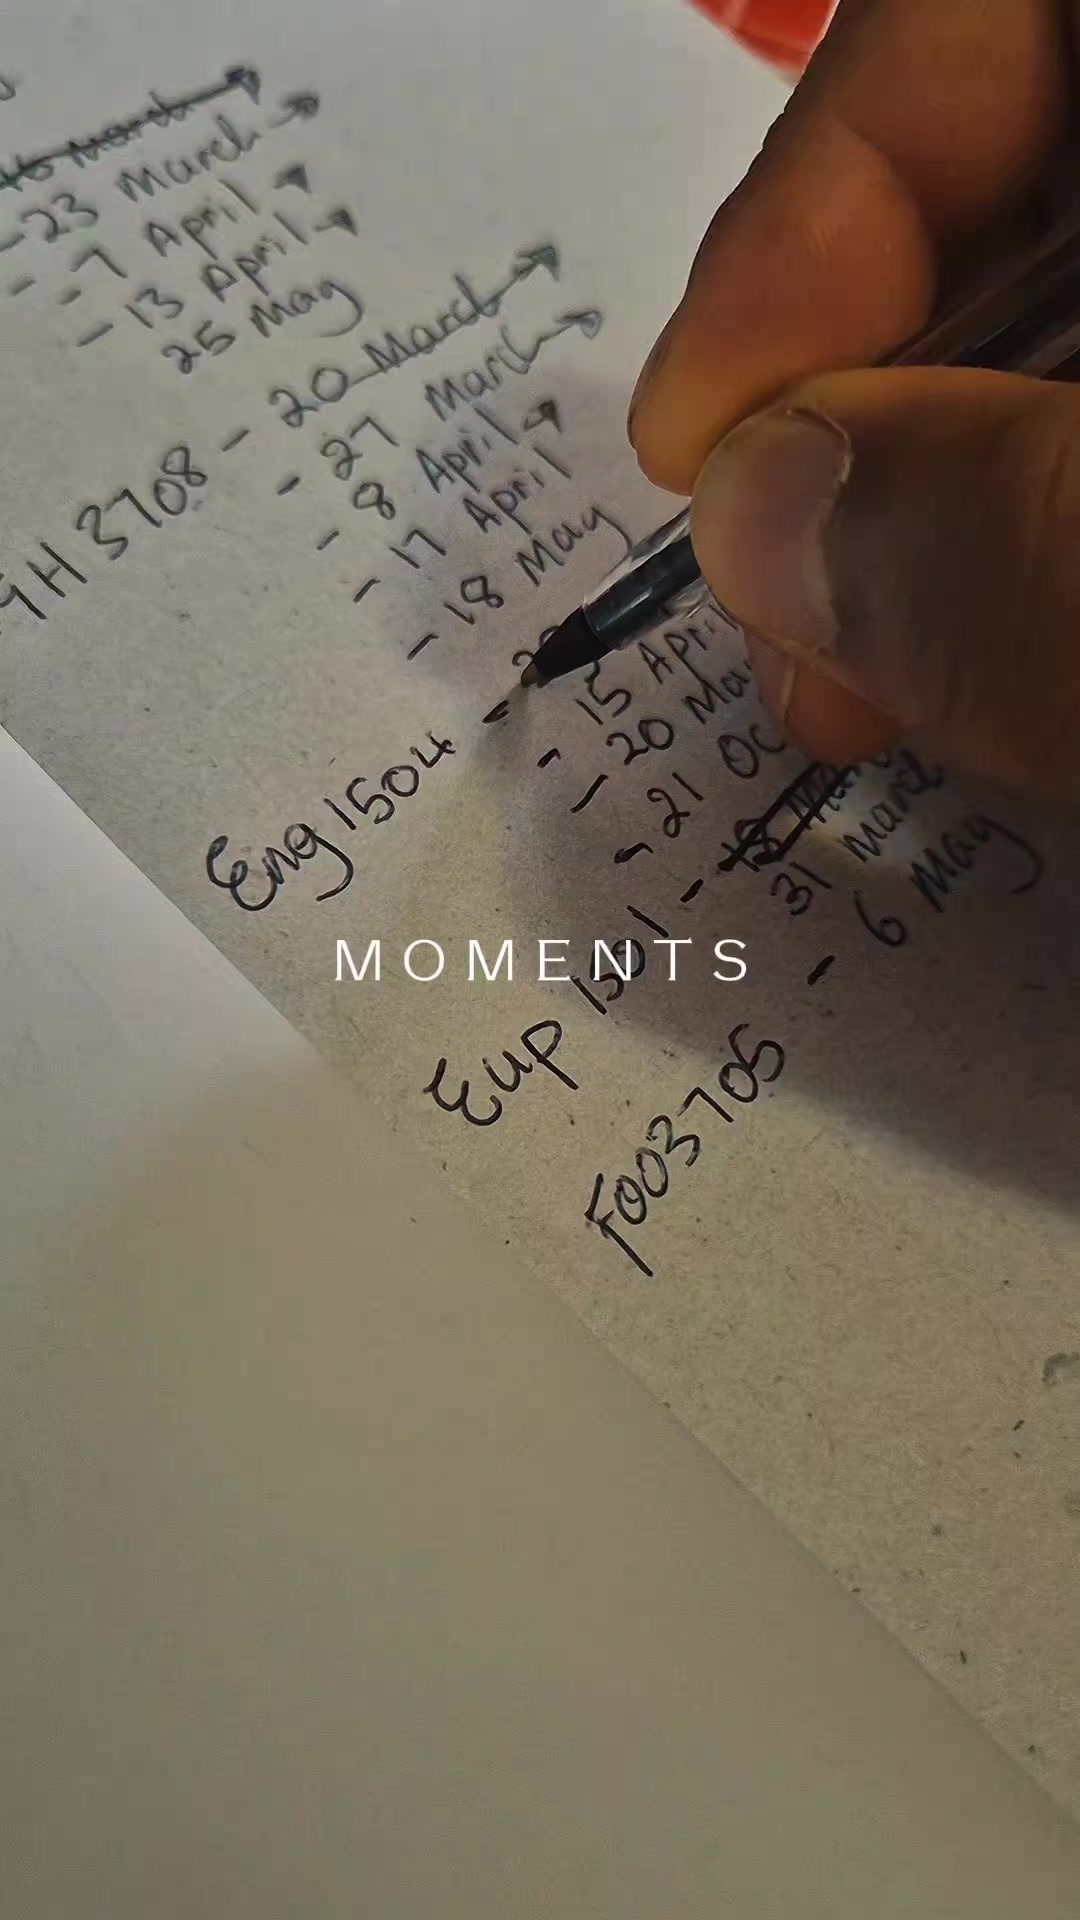 16 March
- 23 March
- 7 April
- 13 April
25 May
GH 3708 - 20 March
- 27 March
- 8 April
- 17 April
- 18 May
Eng 1504 -
- 15 April
- 20 May
- 21 Oc
Eup 1501 - 18
31 March
F003705 - 6 May
MOMENTS